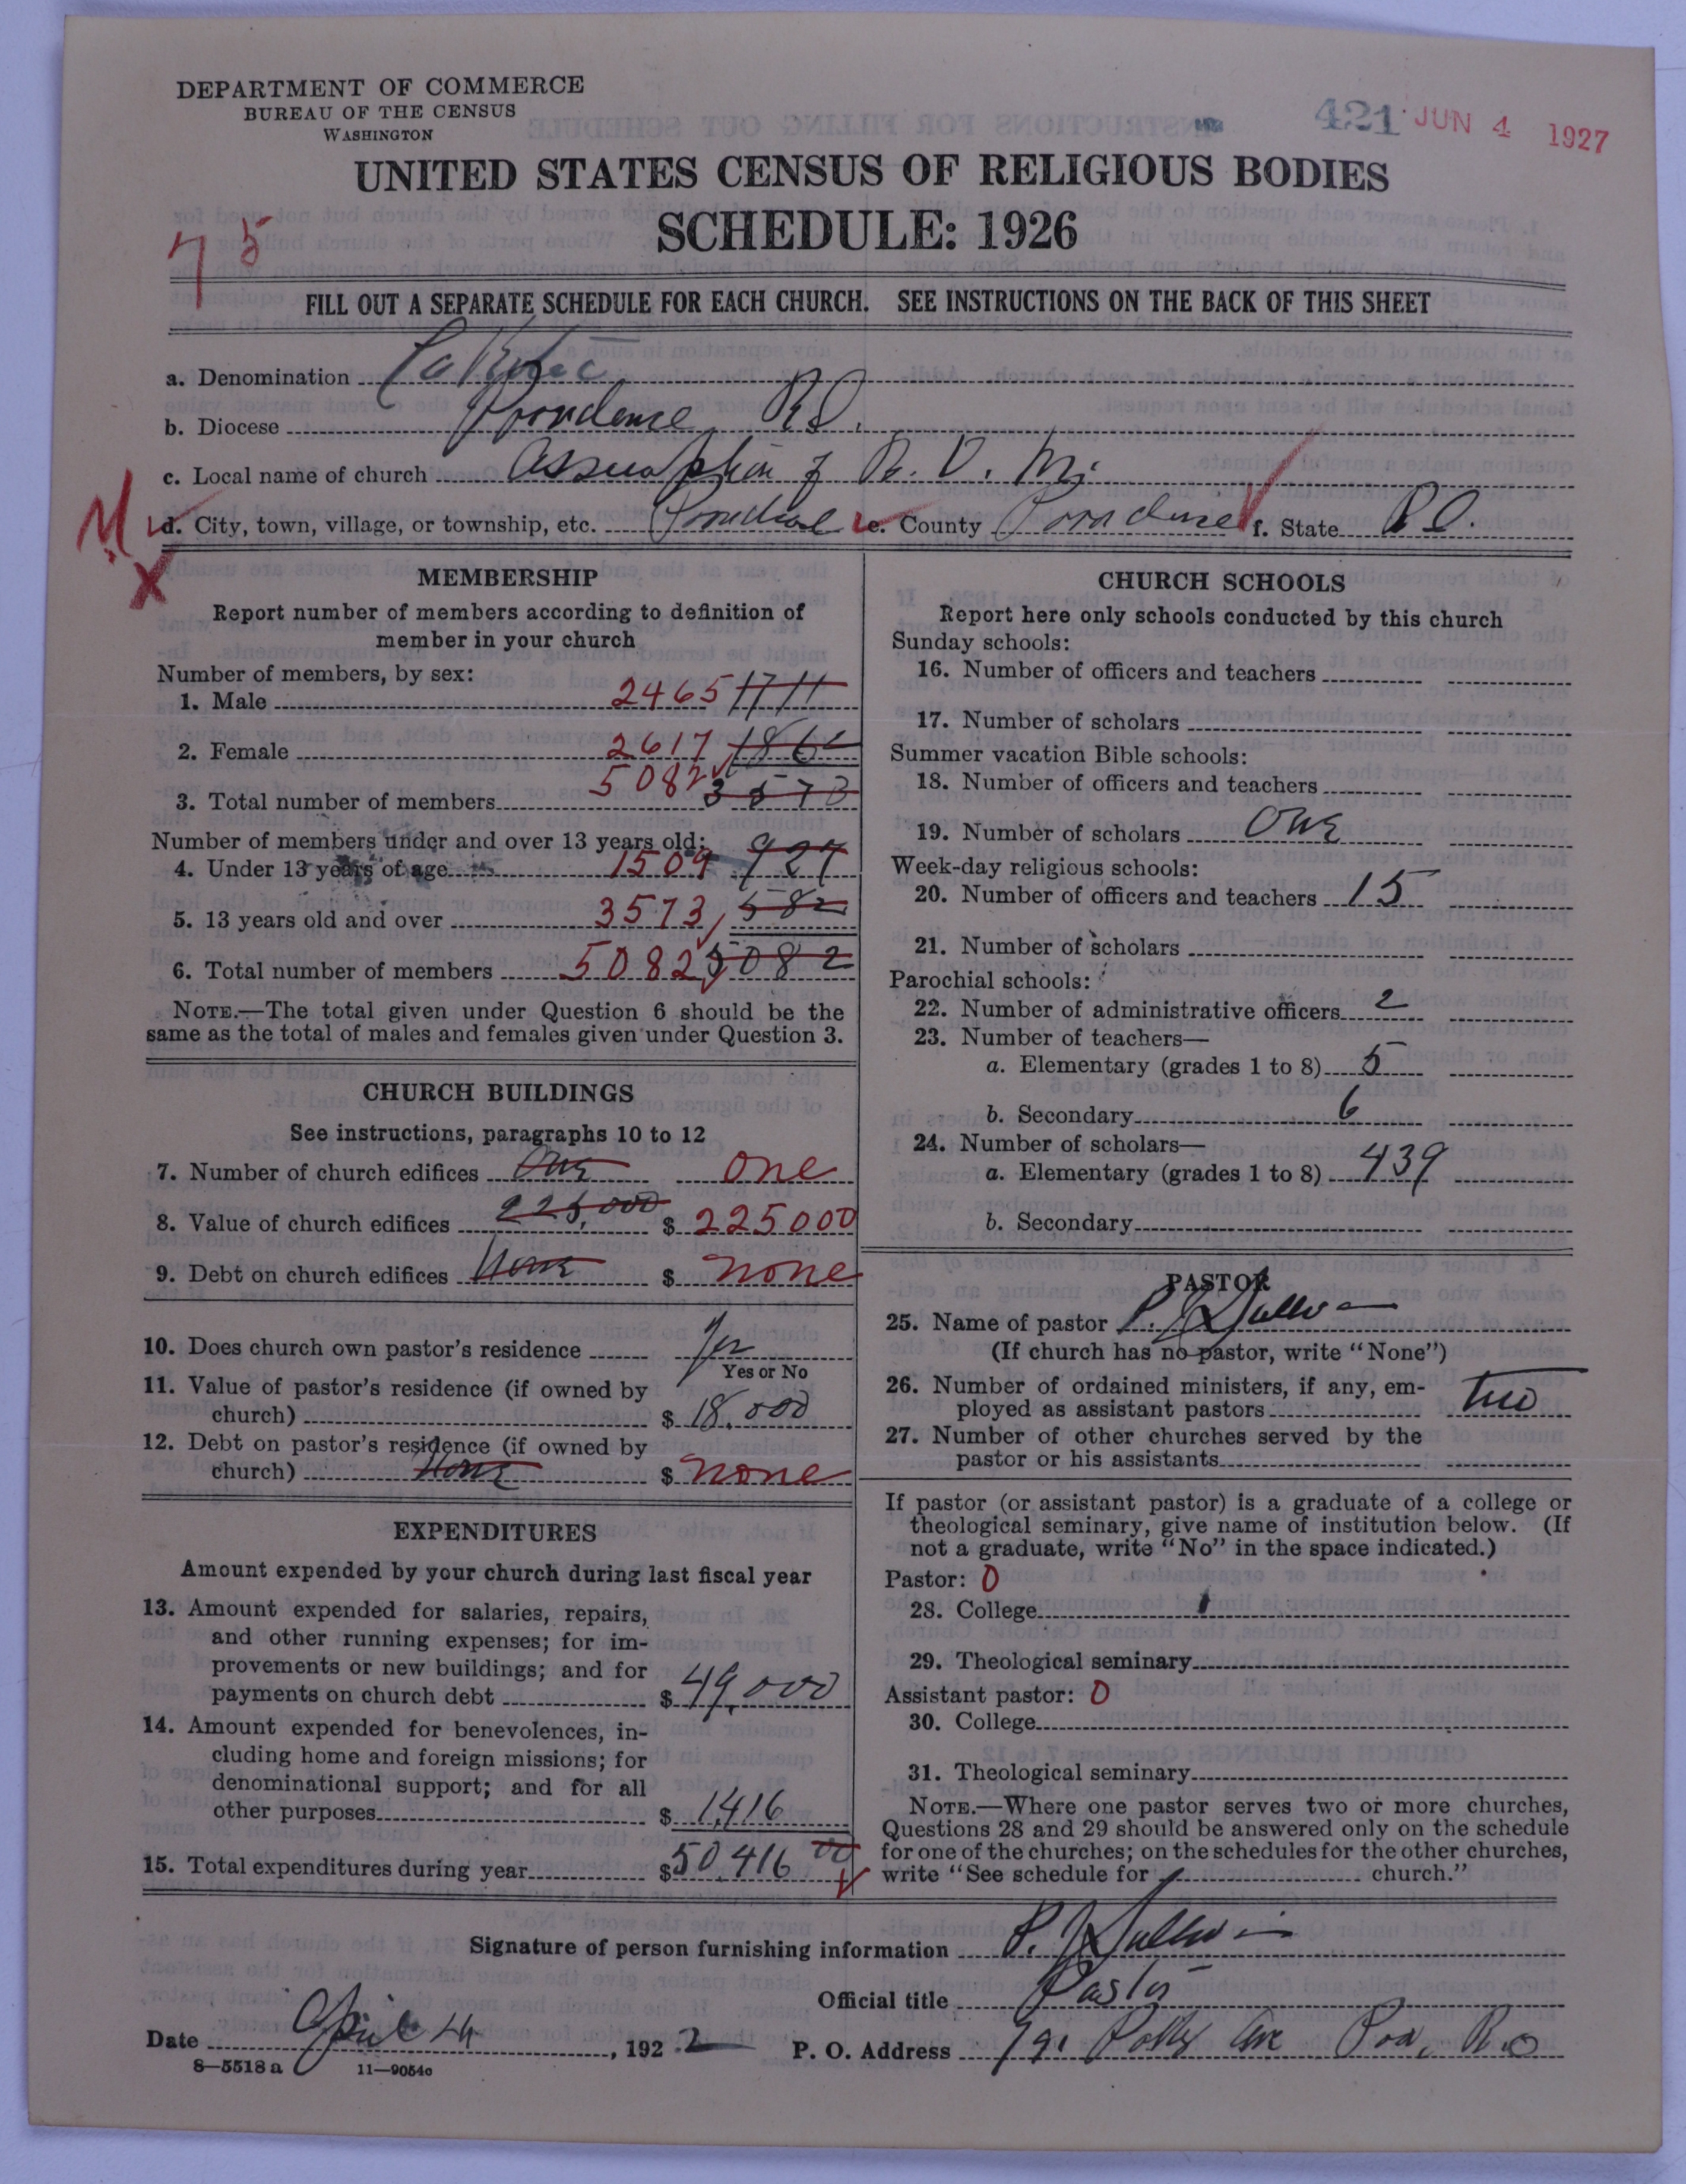 DEPARTMENT OF COMMERCE
BUREAU OF THE CENSUS
WASHINGTON
421 JUN 4 1927
UNITED STATES CENSUS OF RELIGIOUS BODIES
SCHEDULE: 1926
75
FILL OUT A SEPARATE SCHEDULE FOR EACH CHURCH. SEE INSTRUCTIONS ON THE BACK OF THIS SHEET
a. Denomination Catholic
b. Diocese Providence, R.I.
c. Local name of church Assumption of B. V. M.
d. City, town, village, or township, etc. Providence e. County Providence f. State R.I.
MEMBERSHIP
Report number of members according to definition of
member in your church
Number of members, by sex:
1. Male 2465 1711
2. Female 2617 1862
3. Total number of members 5082 3573
Number of members under and over 13 years old:
4. Under 13 years of age 1509 927
5. 13 years old and over 3573 582
6. Total number of members 5082 5082
NOTE.—The total given under Question 6 should be the
same as the total of males and females given under Question 3.
CHURCH BUILDINGS
See instructions, paragraphs 10 to 12
7. Number of church edifices One One
8. Value of church edifices 225,000 $ 225000
9. Debt on church edifices None $ none
10. Does church own pastor's residence Yes
Yes or No
11. Value of pastor's residence (if owned by
church) $ 18,000
12. Debt on pastor's residence (if owned by
church) None $ none
EXPENDITURES
Amount expended by your church during last fiscal year
13. Amount expended for salaries, repairs,
and other running expenses; for im-
provements or new buildings; and for
payments on church debt $ 49,000
14. Amount expended for benevolences, in-
cluding home and foreign missions; for
denominational support; and for all
other purposes $ 1,416
15. Total expenditures during year $ 50,416 00
CHURCH SCHOOLS
Report here only schools conducted by this church
Sunday schools:
16. Number of officers and teachers
17. Number of scholars
Summer vacation Bible schools:
18. Number of officers and teachers
19. Number of scholars One
Week-day religious schools:
20. Number of officers and teachers 15
21. Number of scholars
Parochial schools:
22. Number of administrative officers 2
23. Number of teachers—
a. Elementary (grades 1 to 8) 5
b. Secondary 6
24. Number of scholars—
a. Elementary (grades 1 to 8) 439
b. Secondary
PASTOR
25. Name of pastor P. J. Sullivan
(If church has no pastor, write "None")
26. Number of ordained ministers, if any, em-
ployed as assistant pastors two
27. Number of other churches served by the
pastor or his assistants
If pastor (or assistant pastor) is a graduate of a college or
theological seminary, give name of institution below. (If
not a graduate, write "No" in the space indicated.)
Pastor: 0
28. College
29. Theological seminary
Assistant pastor: 0
30. College
31. Theological seminary
NOTE.—Where one pastor serves two or more churches,
Questions 28 and 29 should be answered only on the schedule
for one of the churches; on the schedules for the other churches,
write "See schedule for church."
Signature of person furnishing information P. J. Sullivan
Official title Pastor
Date April 24, 1922 P. O. Address 791 Potters Ave Prov. R.I.
8—5518 a 11—9054c